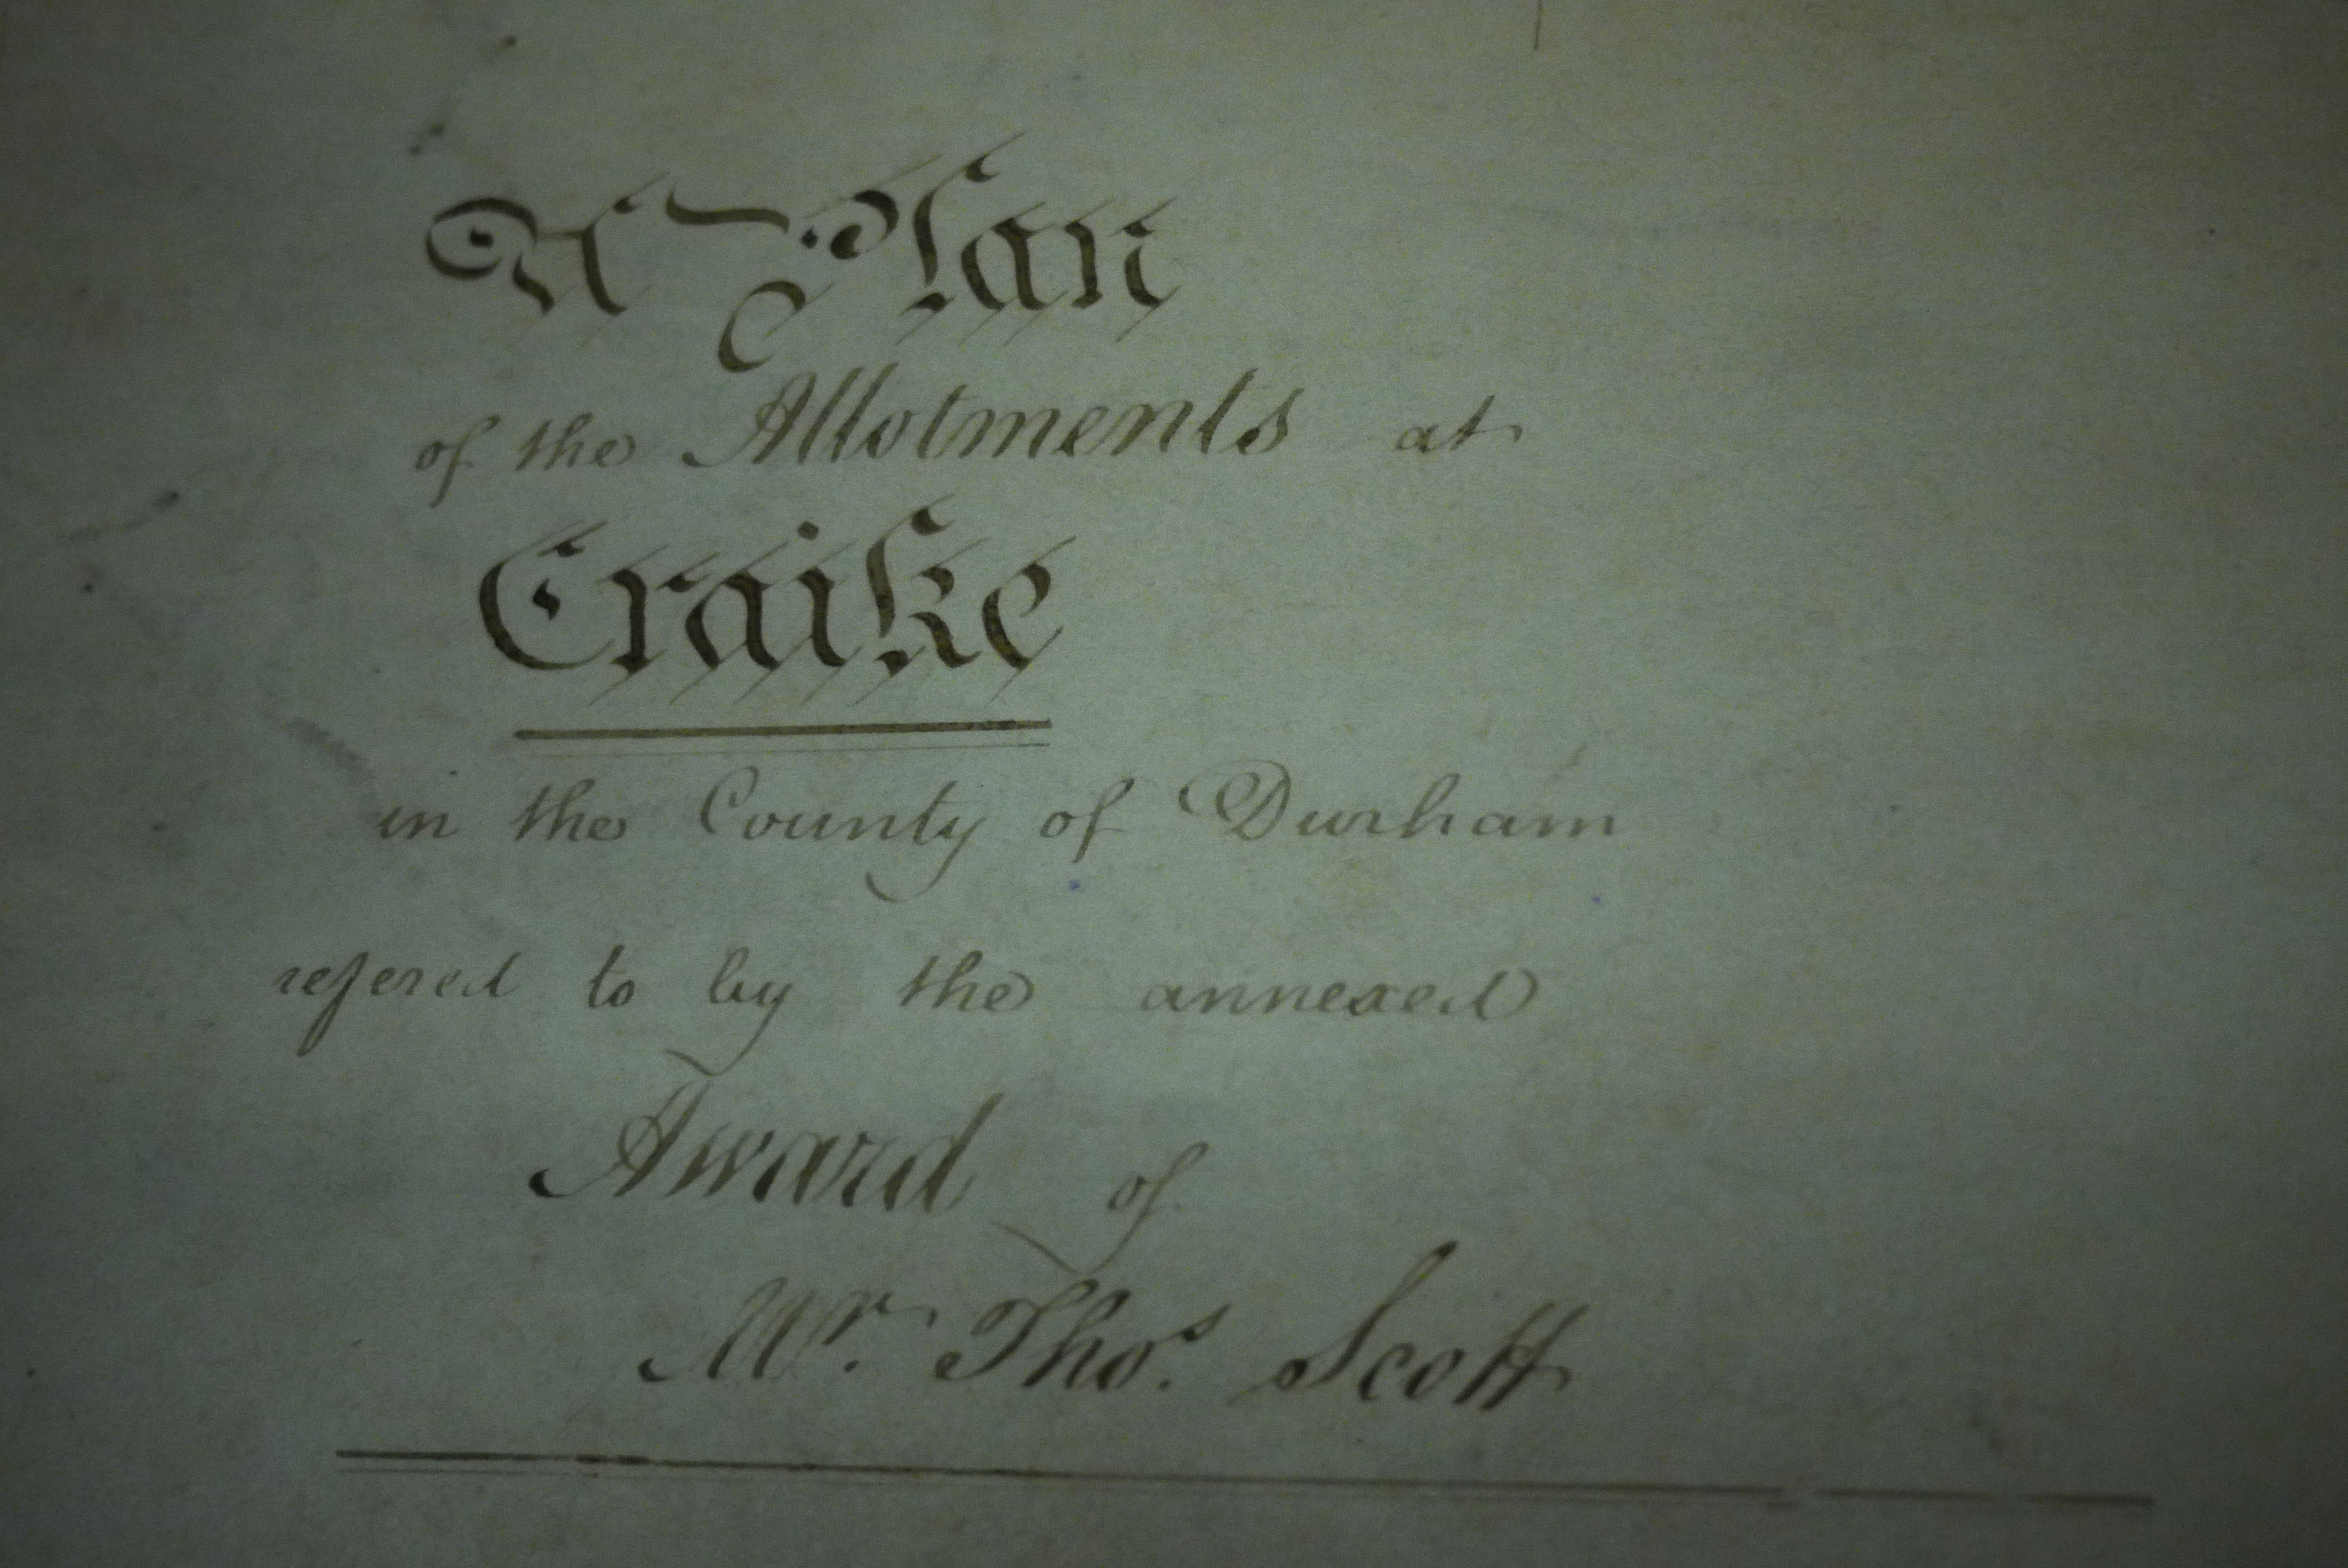 A Plan
of the Allotments at
Craike
in the County of Durham
refered to by the annexed
Award of
Mr. Thos. Scott